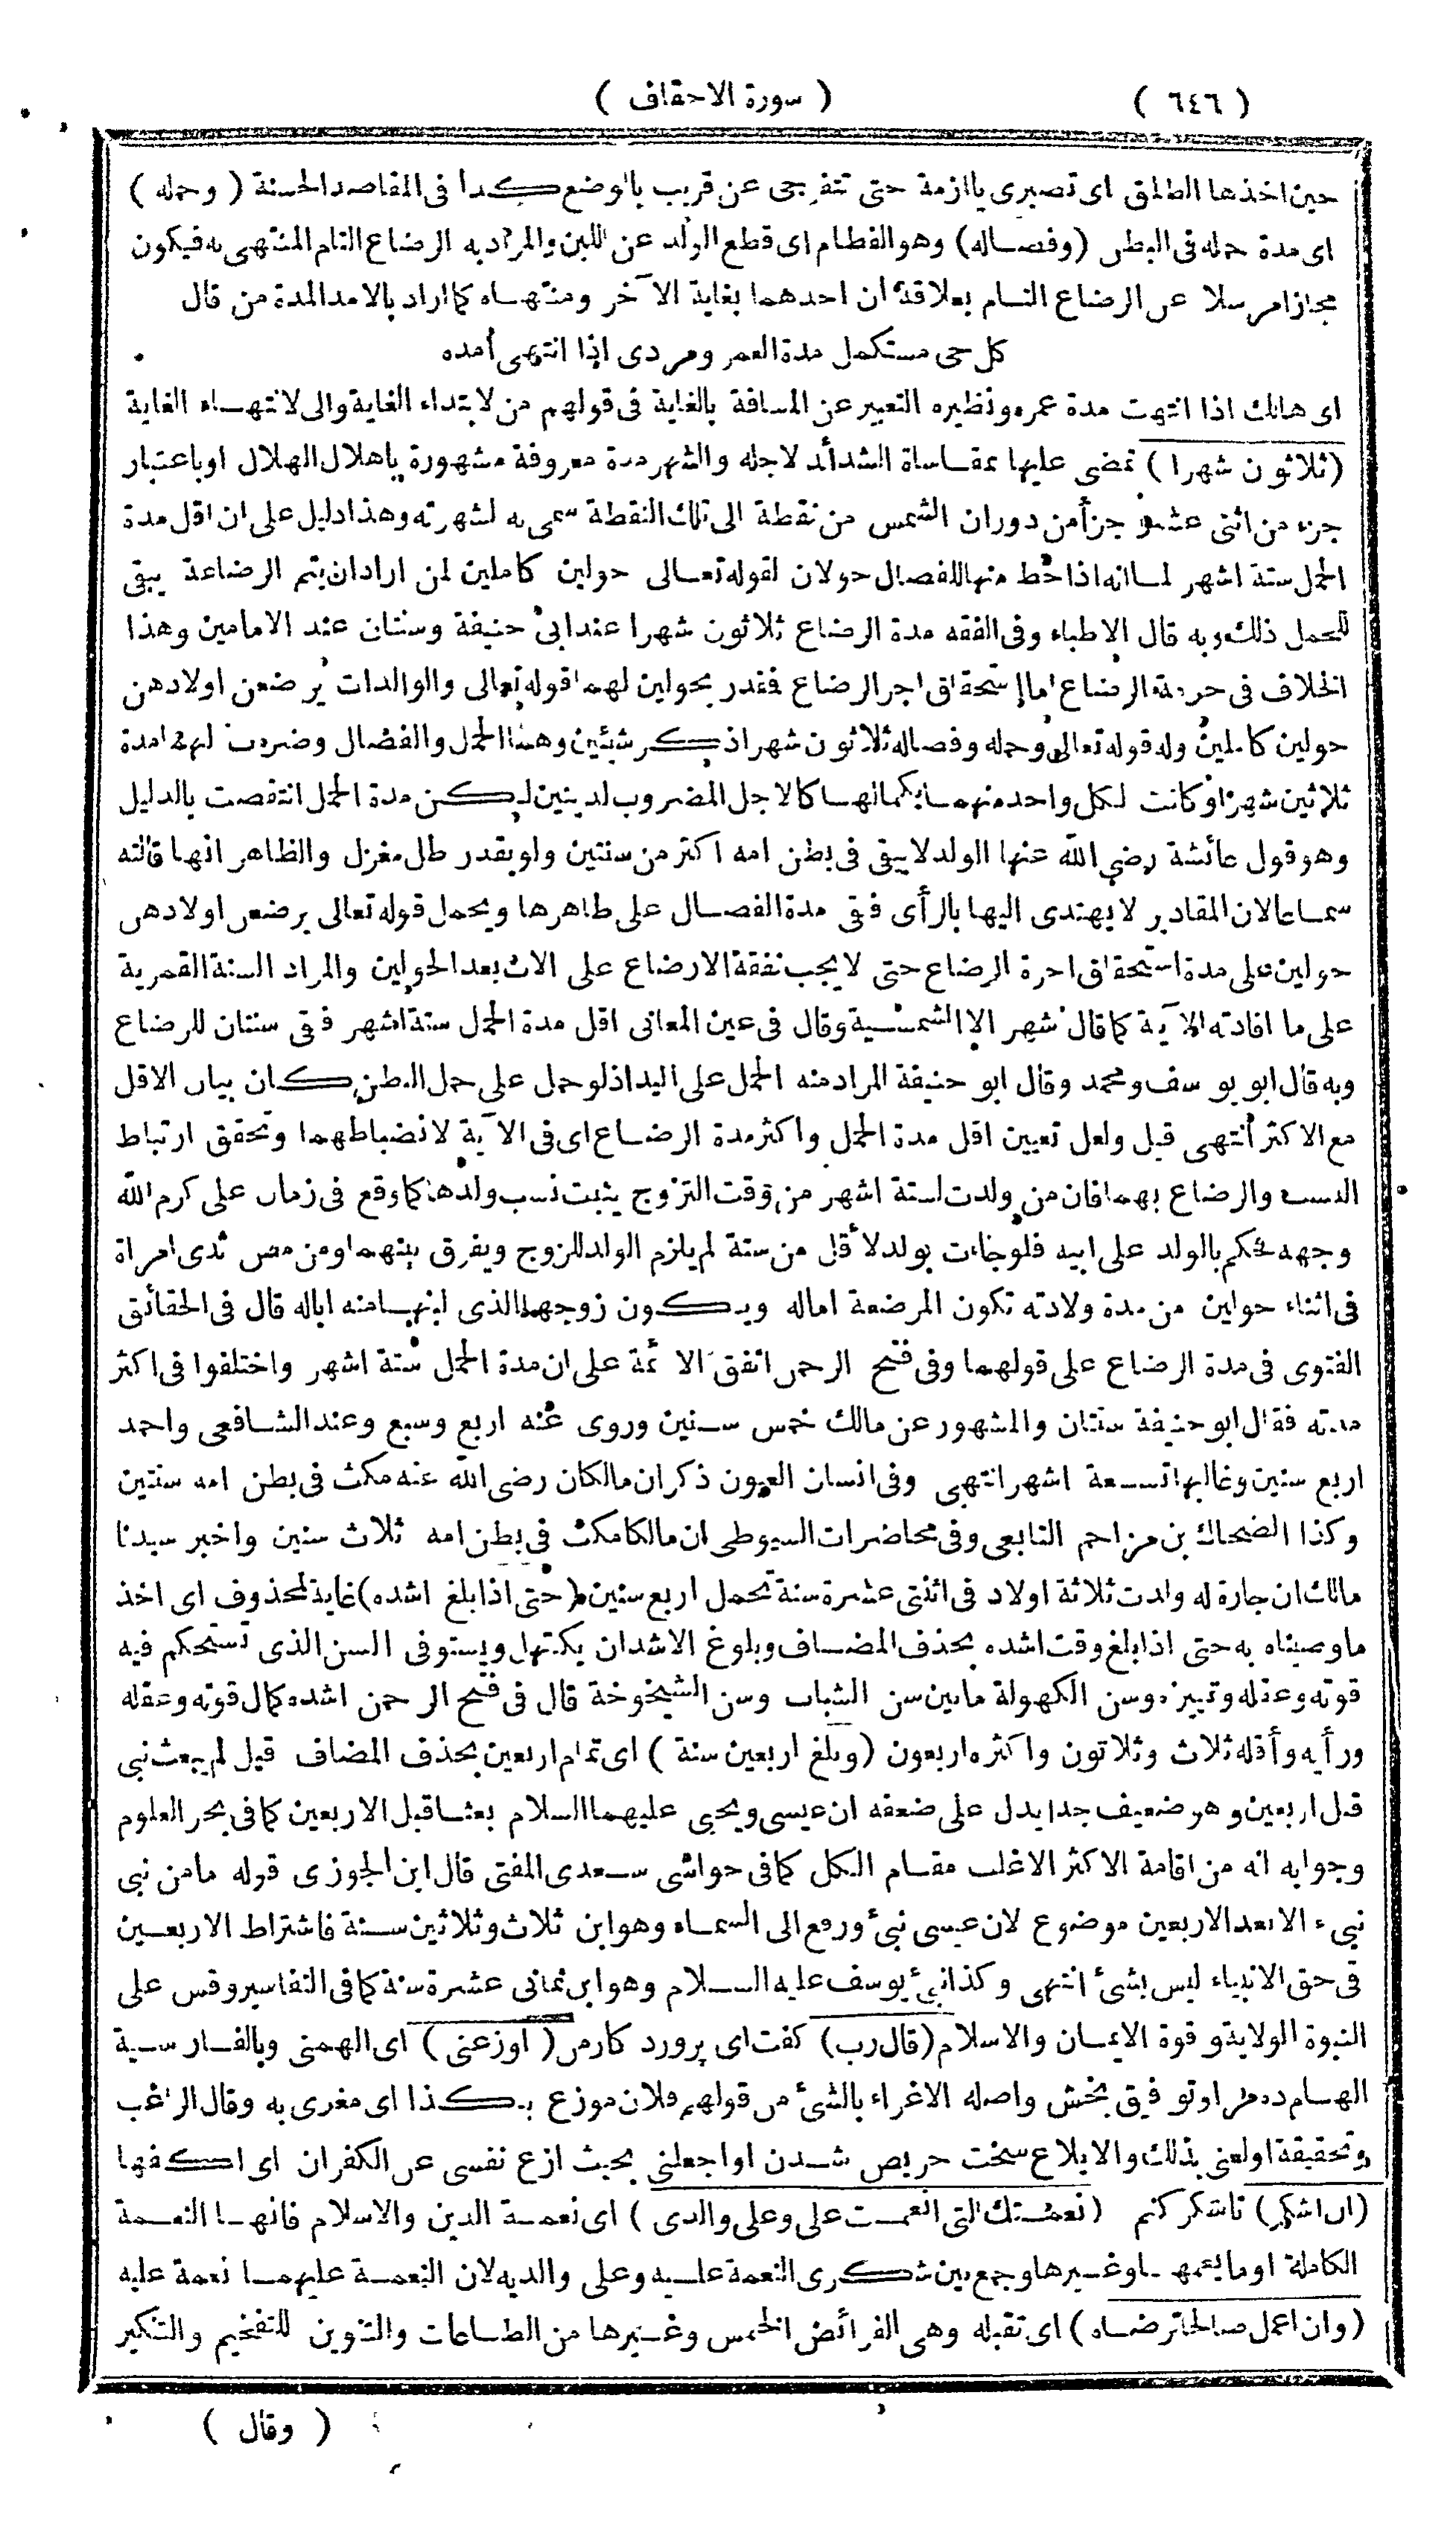 ( ٦٤٦ ) ( سورة الاحقاف )
حين اخذها الطلق اى تصبرى يا ازمة حتى تتفرجى عن قريب بالوضع كذا فى المقاصد الحسنة ( وحمله )
اى مدة حمله فى البطن (وفصاله) وهو الفطام اى قطع الولد عن اللبن والمراد به الرضاع التام المنتهى به فيكون
مجازا مرسلا عن الرضاع التام بعلاقة ان احدهما بغاية الآخر ومنتهاه كما اراد بالامد المدة من قال
كل حى مستكمل مدة العمر ومردى اذا انتهى أمده
اى هالك اذا انتهت مدة عمره ونظيره التعبير عن المسافة بالغاية فى قولهم من لابتداء الغاية والى لانتهاء الغاية
(ثلاثون شهرا ) تمضى عليها بمقاساة الشدأئد لاجله والشهر مدة معروفة مشهورة باهلال الهلال او باعتبار
جزء من اثنى عشر جزأ من دوران الشمس من نقطة الى تلك النقطة سمى به لشهرته وهذا دليل على ان اقل مدة
الحمل ستة اشهر لما انه اذا حط منها للفصال حولان لقوله تعالى حولين كاملين لمن اراد ان يتم الرضاعة يبقى
للحمل ذلك وبه قال الاطباء وفى الفقه مدة الرضاع ثلاثون شهرا عند ابى حنيفة وسنتان عند الامامين وهذا
الخلاف فى حرمة الرضاع اما استحقاق اجر الرضاع فقدر بحولين لهما قوله تعالى والوالدات يرضعن اولادهن
حولين كاملين وله قوله تعالى وحمله وفصاله ثلاثون شهرا ذكر شيئين وهما الحمل والفصال وضرب لهما مدة
ثلاثين شهرا وكانت لكل واحد منهما بكمالها كالاجل المضروب لدينين لكن مدة الحمل انتقصت بالدليل
وهو قول عائشة رضى الله عنها الولد لا يبقى فى بطن امه اكثر من سنتين ولو بقدر ظل مغزل والظاهر انها قالته
سماعا لان المقادير لا يهتدى اليها بالرأى فبقى مدة الفصال على ظاهرها ويحمل قوله تعالى يرضعن اولادهن
حولين على مدة استحقاق اجرة الرضاع حتى لا يجب نفقة الارضاع على الاب بعد الحولين والمراد السنة القمرية
على ما افادته الآية كما قال شهرا لا الشمسية وقال فى عين المعانى اقل مدة الحمل ستة اشهر فبقى سنتان للرضاع
وبه قال ابو يوسف ومحمد وقال ابو حنيفة المراد منه الحمل على اليد اذ لو حمل على حمل البطن كان بيان الاقل
مع الاكثر انتهى قيل ولعل تعيين اقل مدة الحمل واكثر مدة الرضاع اى فى الآية لانضباطهما وتحقق ارتباط
النسب والرضاع بهما فان من ولدت لستة اشهر من وقت التزوج يثبت نسب ولدها كما وقع فى زمان على كرم الله
وجهه فحكم بالولد على ابيه فلو جاءت بولد لأقل من ستة لم يلزم الولد للزوج ويفرق بينهما ومن مص ثدى امرأة
فى اثناء حولين من مدة ولادته تكون المرضعة اما له ويكون زوجها الذى لبنها منه ابا له قال فى الحقائق
الفتوى فى مدة الرضاع على قولهما وفى فتح الرحمن اتفق الائمة على ان مدة الحمل ستة اشهر واختلفوا فى اكثر
مدته فقال ابو حنيفة سنتان والمشهور عن مالك خمس سنين وروى عنه اربع وسبع وعند الشافعى واحمد
اربع سنين وغالبها تسعة اشهر انتهى وفى انسان العيون ذكر ان مالكا رضى الله عنه مكث فى بطن امه سنتين
وكذا الضحاك بن مزاحم التابعى وفى محاضرات السيوطى ان مالكا مكث فى بطن امه ثلاث سنين واخبر سيدنا
مالك ان جارة له ولدت ثلاثة اولاد فى اثنتى عشرة سنة تحمل اربع سنين (حتى اذا بلغ اشده) غاية لمحذوف اى اخذ
ما وصيناه به حتى اذا بلغ وقت اشده بحذف المضاف وبلوغ الاشد ان يكتهل ويستوفى السن الذى تستحكم فيه
قوته وعقله وتمييزه وسن الكهولة ما بين سن الشباب وسن الشيخوخة قال فى فتح الرحمن اشده كمال قوته وعقله
ورأيه وأقله ثلاث وثلاثون واكثره اربعون (وبلغ اربعين سنة ) اى تمام اربعين بحذف المضاف قيل لم يبعث نبى
قبل اربعين وهو ضعيف جدا يدل على ضعفه ان عيسى ويحيى عليهما السلام بعثا قبل الاربعين كما فى بحر العلوم
وجوابه انه من اقامة الاكثر الاغلب مقام الكل كما فى حواشى سعدى المفتى قال ابن الجوزى قوله ما من نبى
نبىء الا بعد الاربعين موضوع لان عيسى نبئ ورفع الى السماء وهو ابن ثلاث وثلاثين سنة فاشتراط الاربعين
فى حق الانبياء ليس بشئ انتهى وكذا نبئ يوسف عليه السلام وهو ابن ثمانى عشرة سنة كما فى التفاسير وقس على
النبوة الولاية وقوة الايمان والاسلام (قال رب) كفت اى پرورد كار من ( اوزعنى ) اى الهمنى وبالفارسية
الهام ده مرا وتوفيق بخش واصله الاغراء بالشئ من قولهم فلان موزع بكذا اى مغرى به وقال الراغب
وتحقيقة اولعنى بذلك والايلاع سخت حريص شدن او اجعلنى بحيث ازع نفسى عن الكفران اى اكفها
(ان اشكر) تا شكر كنم (نعمتك التى انعمت على وعلى والدى ) اى نعمة الدين والاسلام فانها النعمة
الكاملة او ما يعمها وغيرها وجمع بين شكرى النعمة عليه وعلى والديه لان النعمة عليهما نعمة عليه
(وان اعمل صالحا ترضاه ) اى تقبله وهى الفرائض الخمس وغيرها من الطاعات والتنوين للتفخيم والتنكير
( وقال )